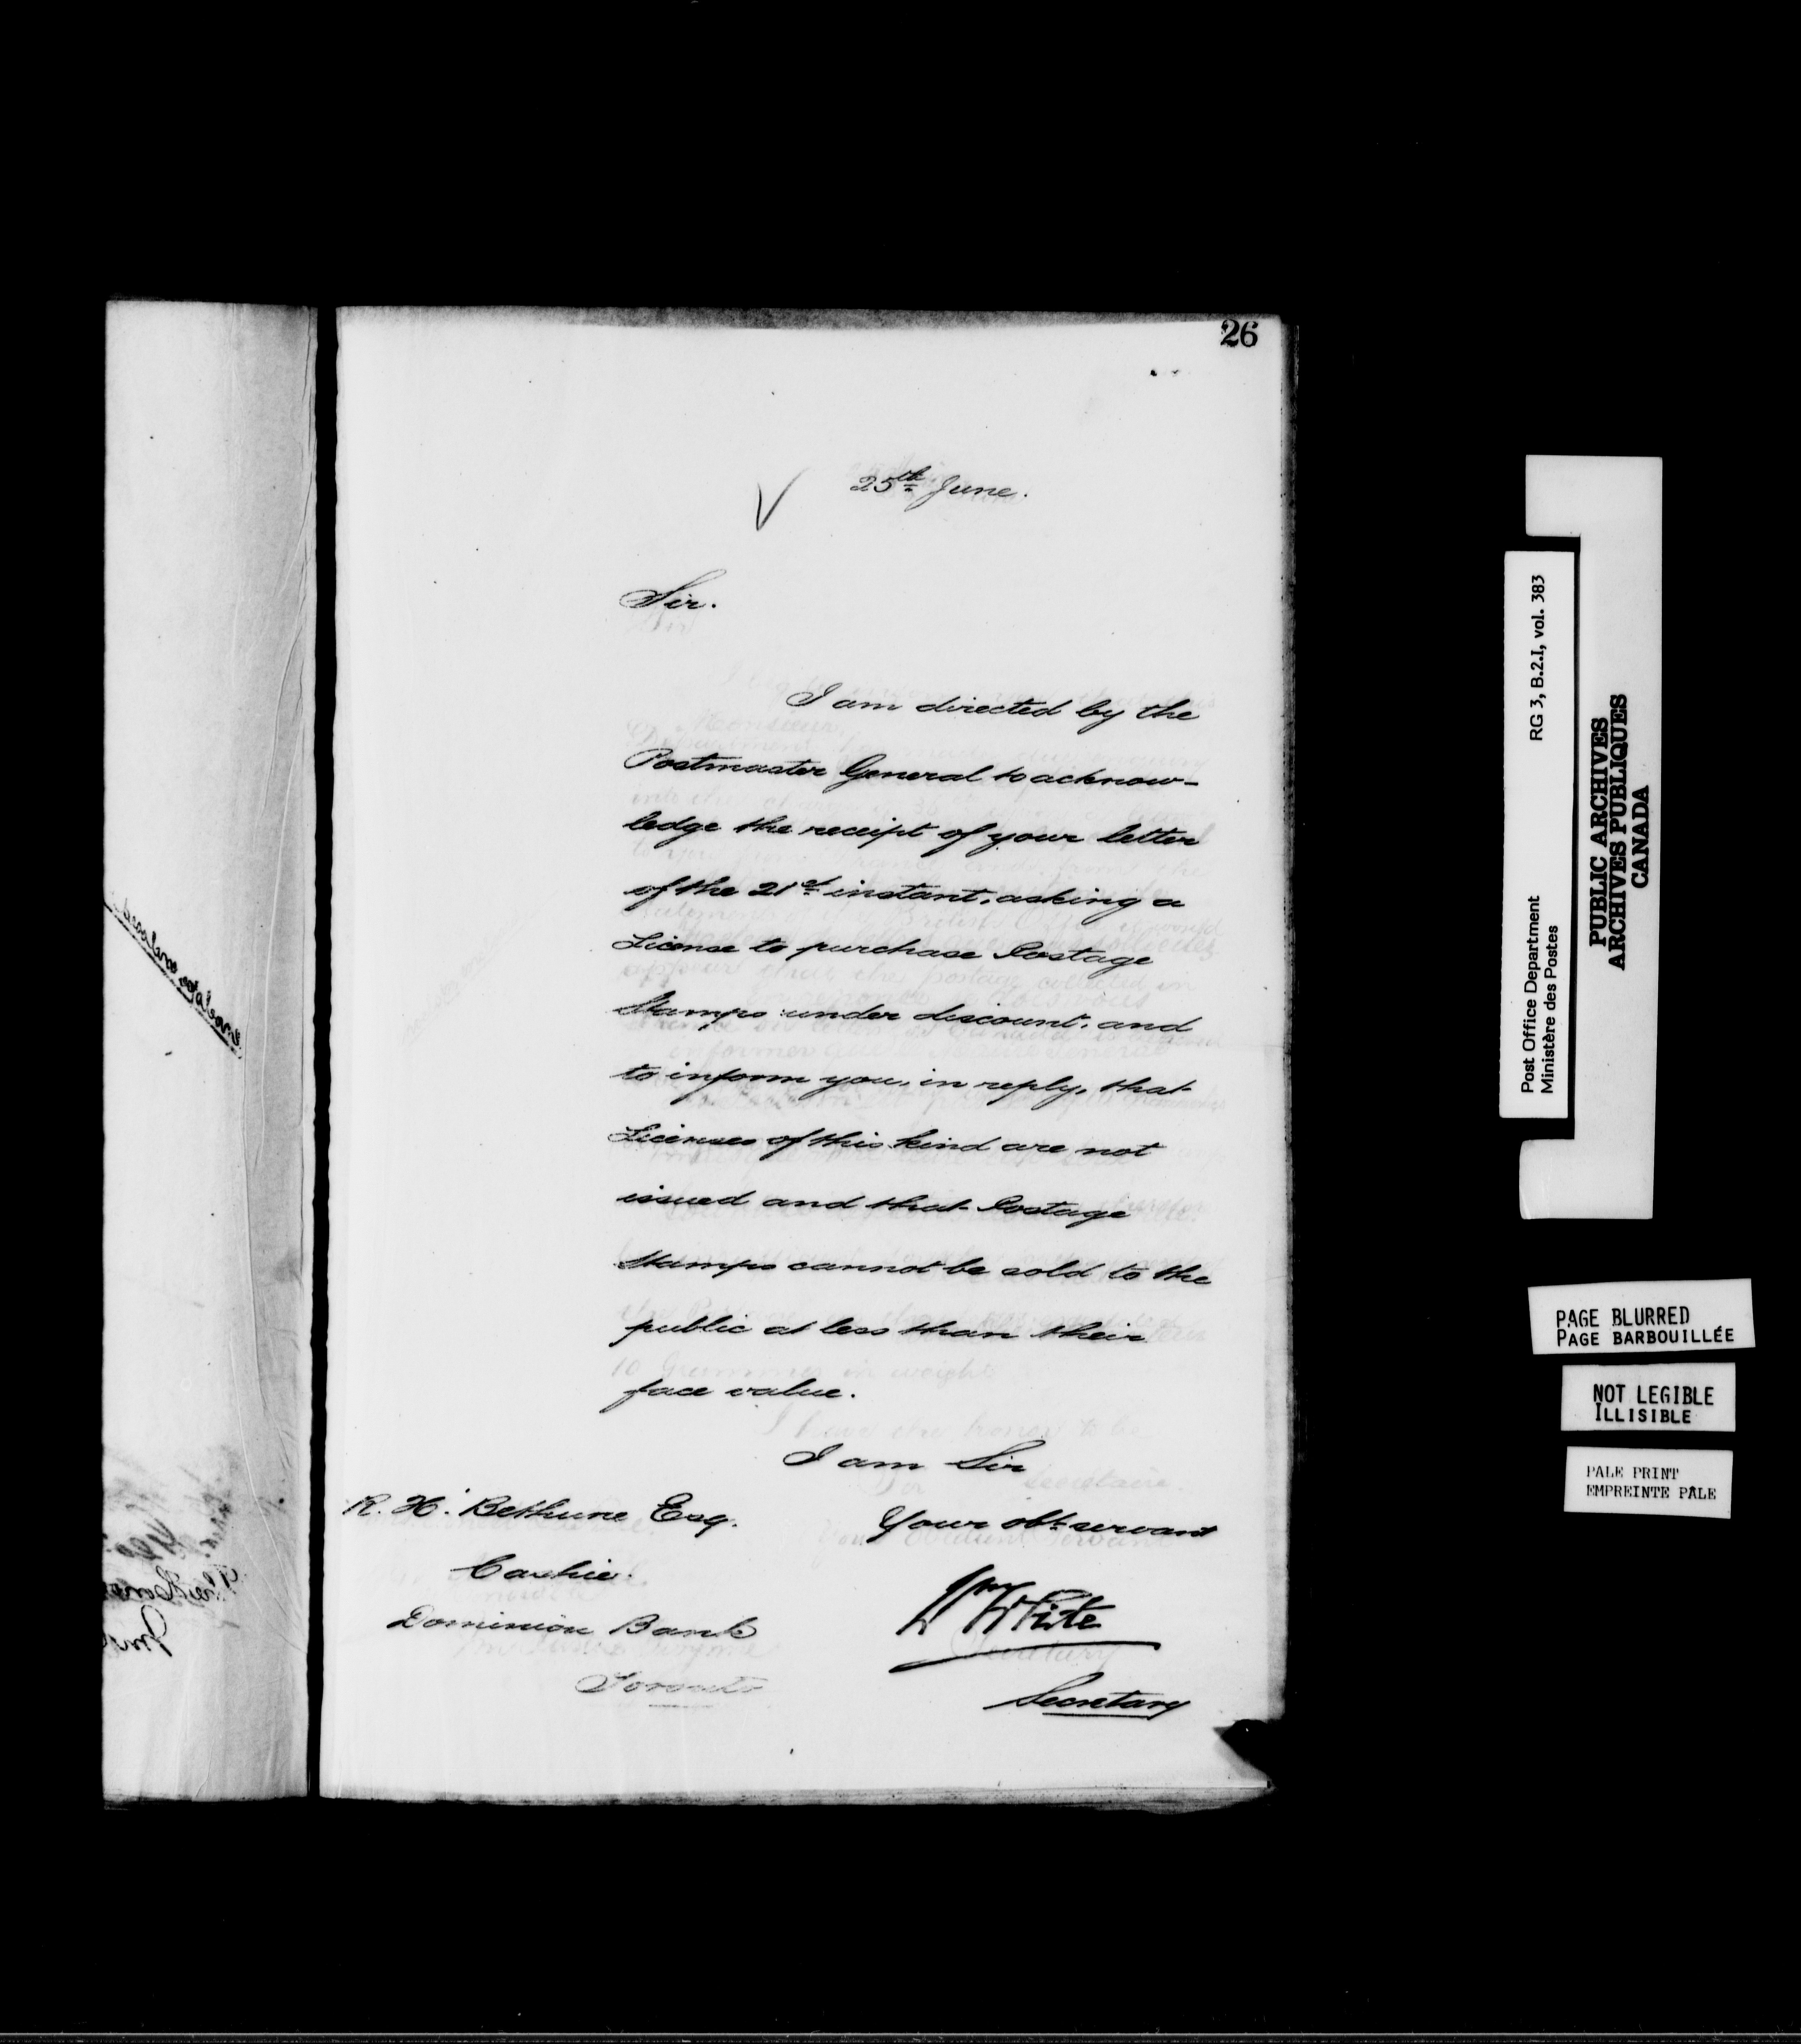 26
25th June.
Sir.
I am directed by the
Postmaster General to acknow-
ledge the receipt of your letter
of the 21st instant, asking a
License to purchase Postage
Stamps under discount, and
to inform you, in reply, that
Licenses of this kind are not
issued and that Postage
Stamps cannot be sold to the
public at less than their
face value.
I am Sir
Your obt servant
Wm White
Secretary
R. H. Bethune Esq.
Cashier.
Dominion Bank
Toronto
Post Office Department RG 3, B.2.I, vol. 383
Ministère des Postes
PUBLIC ARCHIVES
ARCHIVES PUBLIQUES
CANADA
PAGE BLURRED
PAGE BARBOUILLÉE
NOT LEGIBLE
ILLISIBLE
PALE PRINT
EMPREINTE PALE